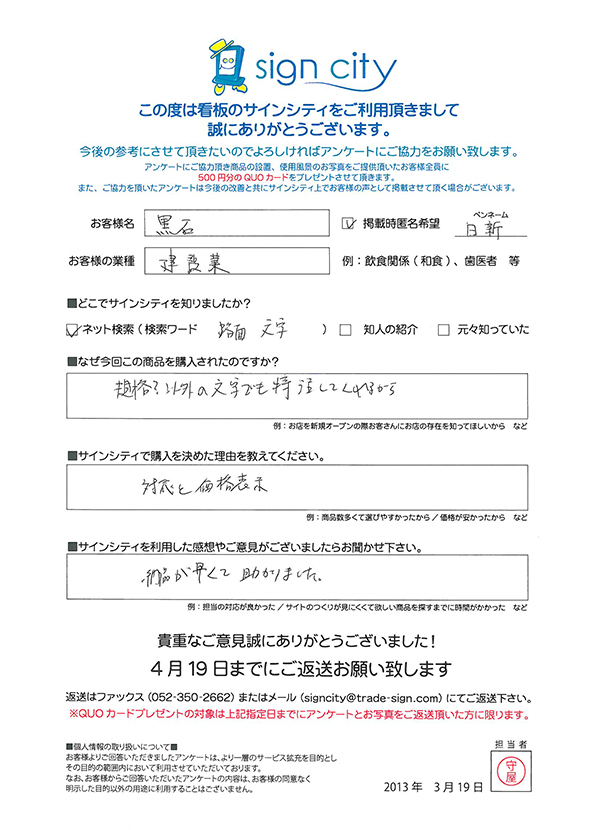 sign city
この度は看板のサインシティをご利用頂きまして
誠にありがとうございます。
今後の参考にさせて頂きたいのでよろしければアンケートにご協力をお願い致します。
アンケートにご協力頂き商品の設置、使用風景のお写真をご提供頂いたお客様全員に
500円分のQUOカードをプレゼントさせて頂きます。
また、ご協力を頂いたアンケートは今後の改善と共にサインシティ上でお客様の声として掲載させて頂く場合がございます。
お客様名 黒石 ☑ 掲載時匿名希望 ペンネーム 日新
お客様の業種 建設業 例：飲食関係（和食）、歯医者 等
■どこでサインシティを知りましたか？
☑ネット検索（検索ワード 路面 文字 ） □ 知人の紹介 □ 元々知っていた
■なぜ今回この商品を購入されたのですか？
規格以外の文字でも特注してくれるから
例：お店を新規オープンの際お客さんにお店の存在を知ってほしいから など
■サインシティで購入を決めた理由を教えてください。
対応と価格表示
例：商品数多くて選びやすかったから／価格が安かったから など
■サインシティを利用した感想やご意見がございましたらお聞かせ下さい。
納品が早くて助かりました。
例：担当の対応が良かった／サイトのつくりが見にくくて欲しい商品を探すまでに時間がかかった など
貴重なご意見誠にありがとうございました！
4月19日までにご返送お願い致します
返送はファックス（052-350-2662）またはメール（signcity@trade-sign.com）にてご返送下さい。
※QUOカードプレゼントの対象は上記指定日までにアンケートとお写真をご返送頂いた方に限ります。
■個人情報の取り扱いについて■
お客様よりご回答いただきましたアンケートは、より一層のサービス拡充を目的とし
その目的の範囲内において利用させていただいております。
なお、お客様からご回答いただいたアンケートの内容は、お客様の同意なく
明示した目的以外の用途に利用することはございません。
2013年 3月19日
担当者
守屋